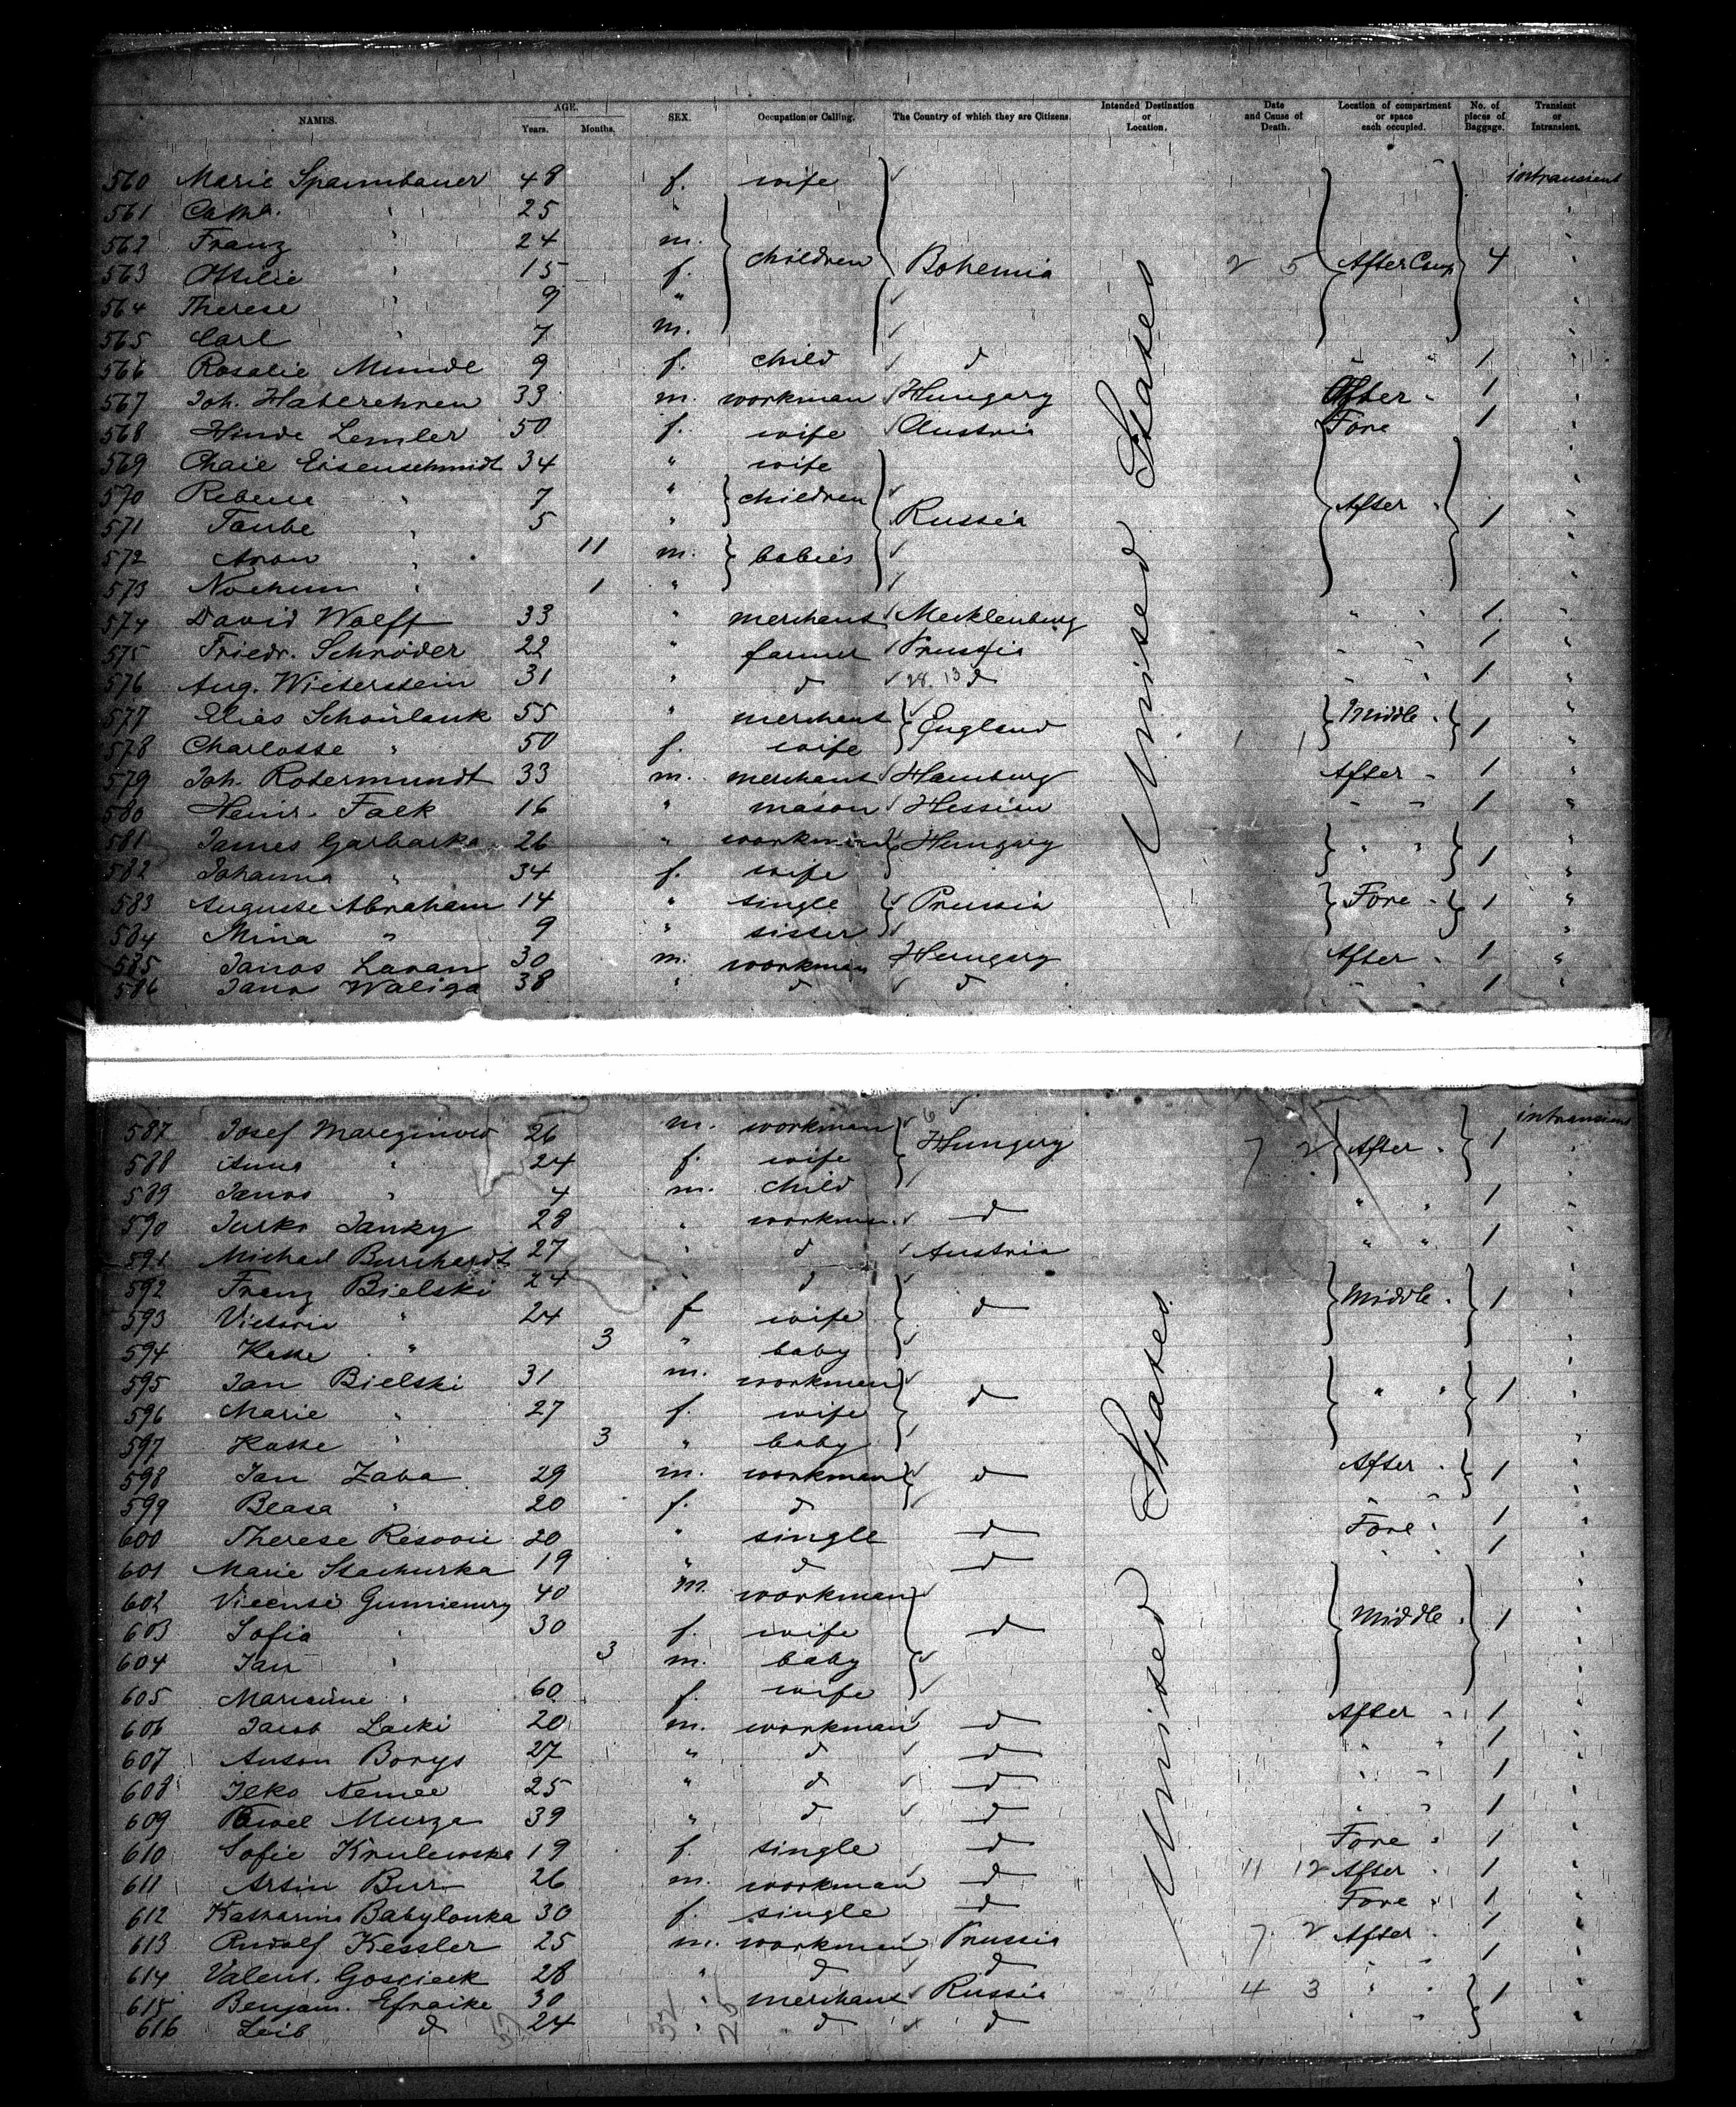 NAMES. AGE. Years. Months. SEX. Occupation or Calling. The Country of which they are Citizens. Intended Destination or Location. Date and Cause of Death. Location of compartment or space each occupied. No. of pieces of Baggage. Transient or Intransient.
560 Marie Spannbauer 48 f. wife intransient
561 Catha. " 25 "
562 Franz " 24 m.
563 Ottilie " 15 f. children Bohemia 2 5 After Comp 4 "
564 Therese " 9 "
565 Carl " 7 m.
566 Rosalie Mundl 9 f. child d " " 1 "
567 Joh. Haberehren 33 m. workman Hungary After " 1 "
568 Hinde Lemler 50 f. wife Austria Fore 1 "
569 Chaie Eisenschmidt 34 " wife
570 Rebecca " 7 " children After " "
571 Taube " 5 " Russia 1 "
572 Aron " 11 m. babies "
573 Nochum " 1 " "
574 David Wolff 33 " merchant Mecklenburg " " 1 "
575 Friedr. Schröder 22 " farmer Prussia " " 1 "
576 Aug. Wieterstein 31 " d 28. 13 d " " 1 "
577 Elias Schönlank 55 " merchant England Middle " 1 "
578 Charlotte " 50 f. wife 1 1 "
579 Joh. Rotermundt 33 m. merchant Hamburg After " 1 "
580 Heinr. Falk 16 " mason Hessian " " 1 "
581 James Garbarka 26 " workman Hungary " " "
582 Johanna " 34 f. wife 1 "
583 Auguste Abraham 14 " single Prussia Fore " 1 "
584 Mina " 9 " sister "
585 Janos Lavan 30 m. workman Hungary After " 1 "
586 Janos Waliga 38 " d d " " 1 "
United States
587 Josef 26 m. workman Hungary 7 2 After " 1 intransient
588 Anna " 24 f. wife "
589 Janos " 4 m. child " " 1 "
590 Jurko Janky 28 " workman d " " 1 "
591 Michael Burchardt 27 " d Austria " " 1 "
592 Franz Bielski 24 " d Middle " 1 "
593 Victoria " 24 f wife d "
594 Kathe " 3 " baby "
595 Jan Bielski 31 m. workman d " " 1 "
596 Marie " 27 f. wife "
597 Kathe " 3 " baby "
598 Jan Zaba 29 m. workman d After " 1 "
599 Beata " 20 f. d "
600 Therese 20 " single d Fore " 1 "
601 Marie Stachurka 19 " d d " " 1 "
602 40 m. workman Middle " 1 "
603 Sofia " 30 f. wife d "
604 Jan " 3 m. baby "
605 Marianne " 60 f. wife "
606 Jacob Lacki 20 m. workman d After " 1 "
607 Anton Borys 27 " d d " " 1 "
608 Ilko Nemec 25 " d d " " 1 "
609 Pawel Murza 39 " d d " " 1 "
610 Sofie Krulewska 19 f. single d Fore " 1 "
611 Artin Bur 26 m. workman d 11 12 After " 1 "
612 Katharina Babylonka 30 f. single d Fore " 1 "
613 Rudolf Kessler 25 m. workman Prussia 7 2 After " 1 "
614 Valent. Goscicek 28 " d d 1 "
615 Benjam. Efraike 30 " merchant Russia 4 3 " " 1 "
616 Leib d 24 " d d " " "
United States